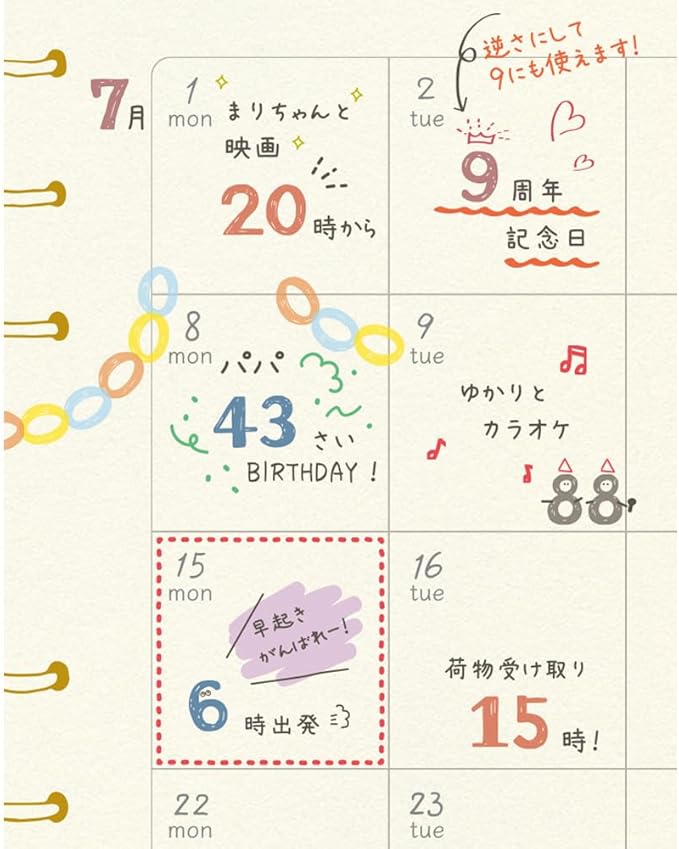 逆さにして
9にも使えます!
7月
1
mon
まりちゃんと
映画
20時から
2
tue
9周年
記念日
8
mon
パパ
43さい
BIRTHDAY!
9
tue
ゆかりと
カラオケ
88
15
mon
早起き
がんばれー!
6時出発
16
tue
荷物受け取り
15時!
22
mon
23
tue